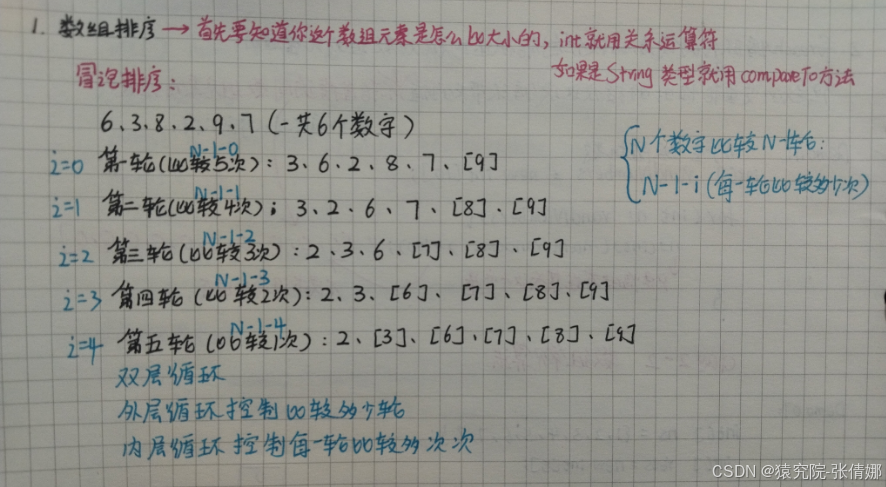 1. 数组排序 → 首先要知道你这个数组元素是怎么比大小的, int就用关系运算符
如果是String 类型就用compareTo方法
冒泡排序:
6、3、8、2、9、7 (一共6个数字)
N-1-0
i=0 第一轮(比较5次): 3、6、2、8、7、[9]
N-1-1
i=1 第二轮(比较4次): 3、2、6、7、[8]、[9]
N-1-2
i=2 第三轮(比较3次): 2、3、6、[7]、[8]、[9]
N-1-3
i=3 第四轮(比较2次): 2、3、[6]、[7]、[8]、[9]
N-1-4
i=4 第五轮(比较1次): 2、[3]、[6]、[7]、[8]、[9]
N个数字比较N-1轮:
N-1-i (每一轮比较多少次)
双层循环
外层循环控制比较多少轮
内层循环控制每一轮比较多次次
CSDN @猿究院-张倩娜